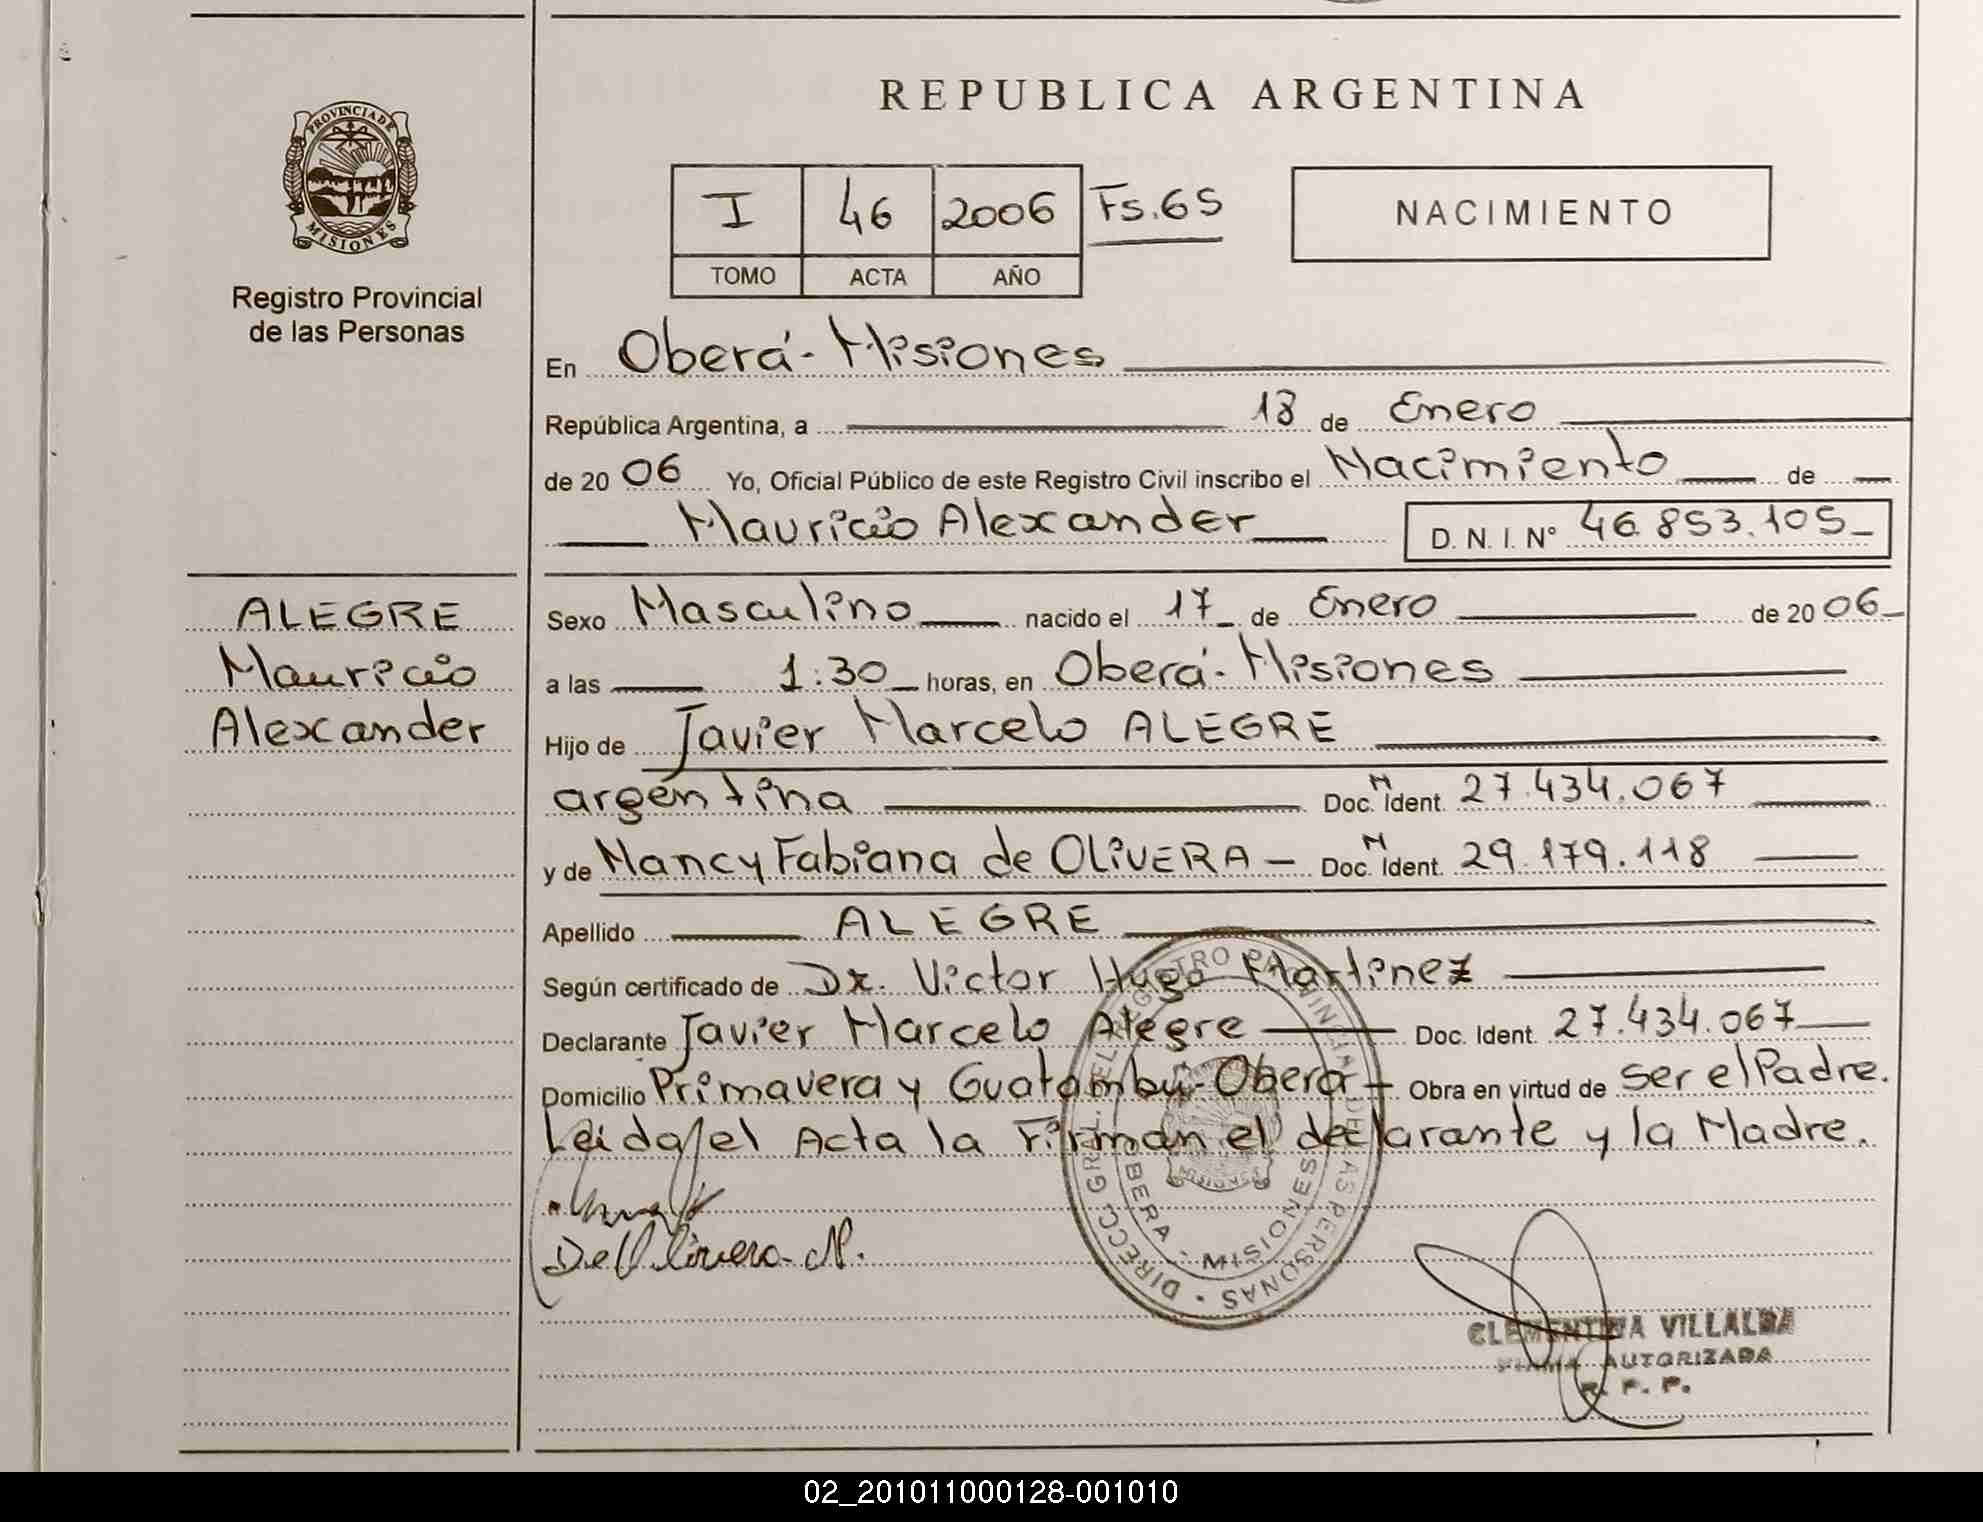 REPUBLICA ARGENTINA
PROVINCIA DE
MISIONES
Registro Provincial
de las Personas
I 46 2006 Fs.65
TOMO ACTA AÑO
NACIMIENTO
En Oberá-Misiones
República Argentina, a 18 de Enero
de 20 06 Yo, Oficial Público de este Registro Civil inscribo el Nacimiento de
Mauricio Alexander D. N. I. Nº 46.853.105
ALEGRE
Mauricio
Alexander
Sexo Masculino nacido el 17 de Enero de 20 06
a las 1:30 horas, en Oberá-Misiones
Hijo de Javier Marcelo ALEGRE
argentina Doc. N Ident. 27.434.067
y de Nancy Fabiana de OLIVERA - Doc. N Ident. 29.179.118
Apellido ALEGRE
Según certificado de Dr. Victor Hugo Martinez
Declarante Javier Marcelo Alegre Doc. Ident. 27.434.067
Domicilio Primavera y Guatambú-Oberá Obra en virtud de ser el Padre.
Leida el Acta la Firman el declarante y la Madre.
De Olivera N.
DIRECC GRAL. DEL REGISTRO PROVINCIAL DE LAS PERSONAS
OBERA - MISIONES
CLEMENTINA VILLALBA
FIRMA AUTORIZADA
R. P. P.
02_201011000128-001010